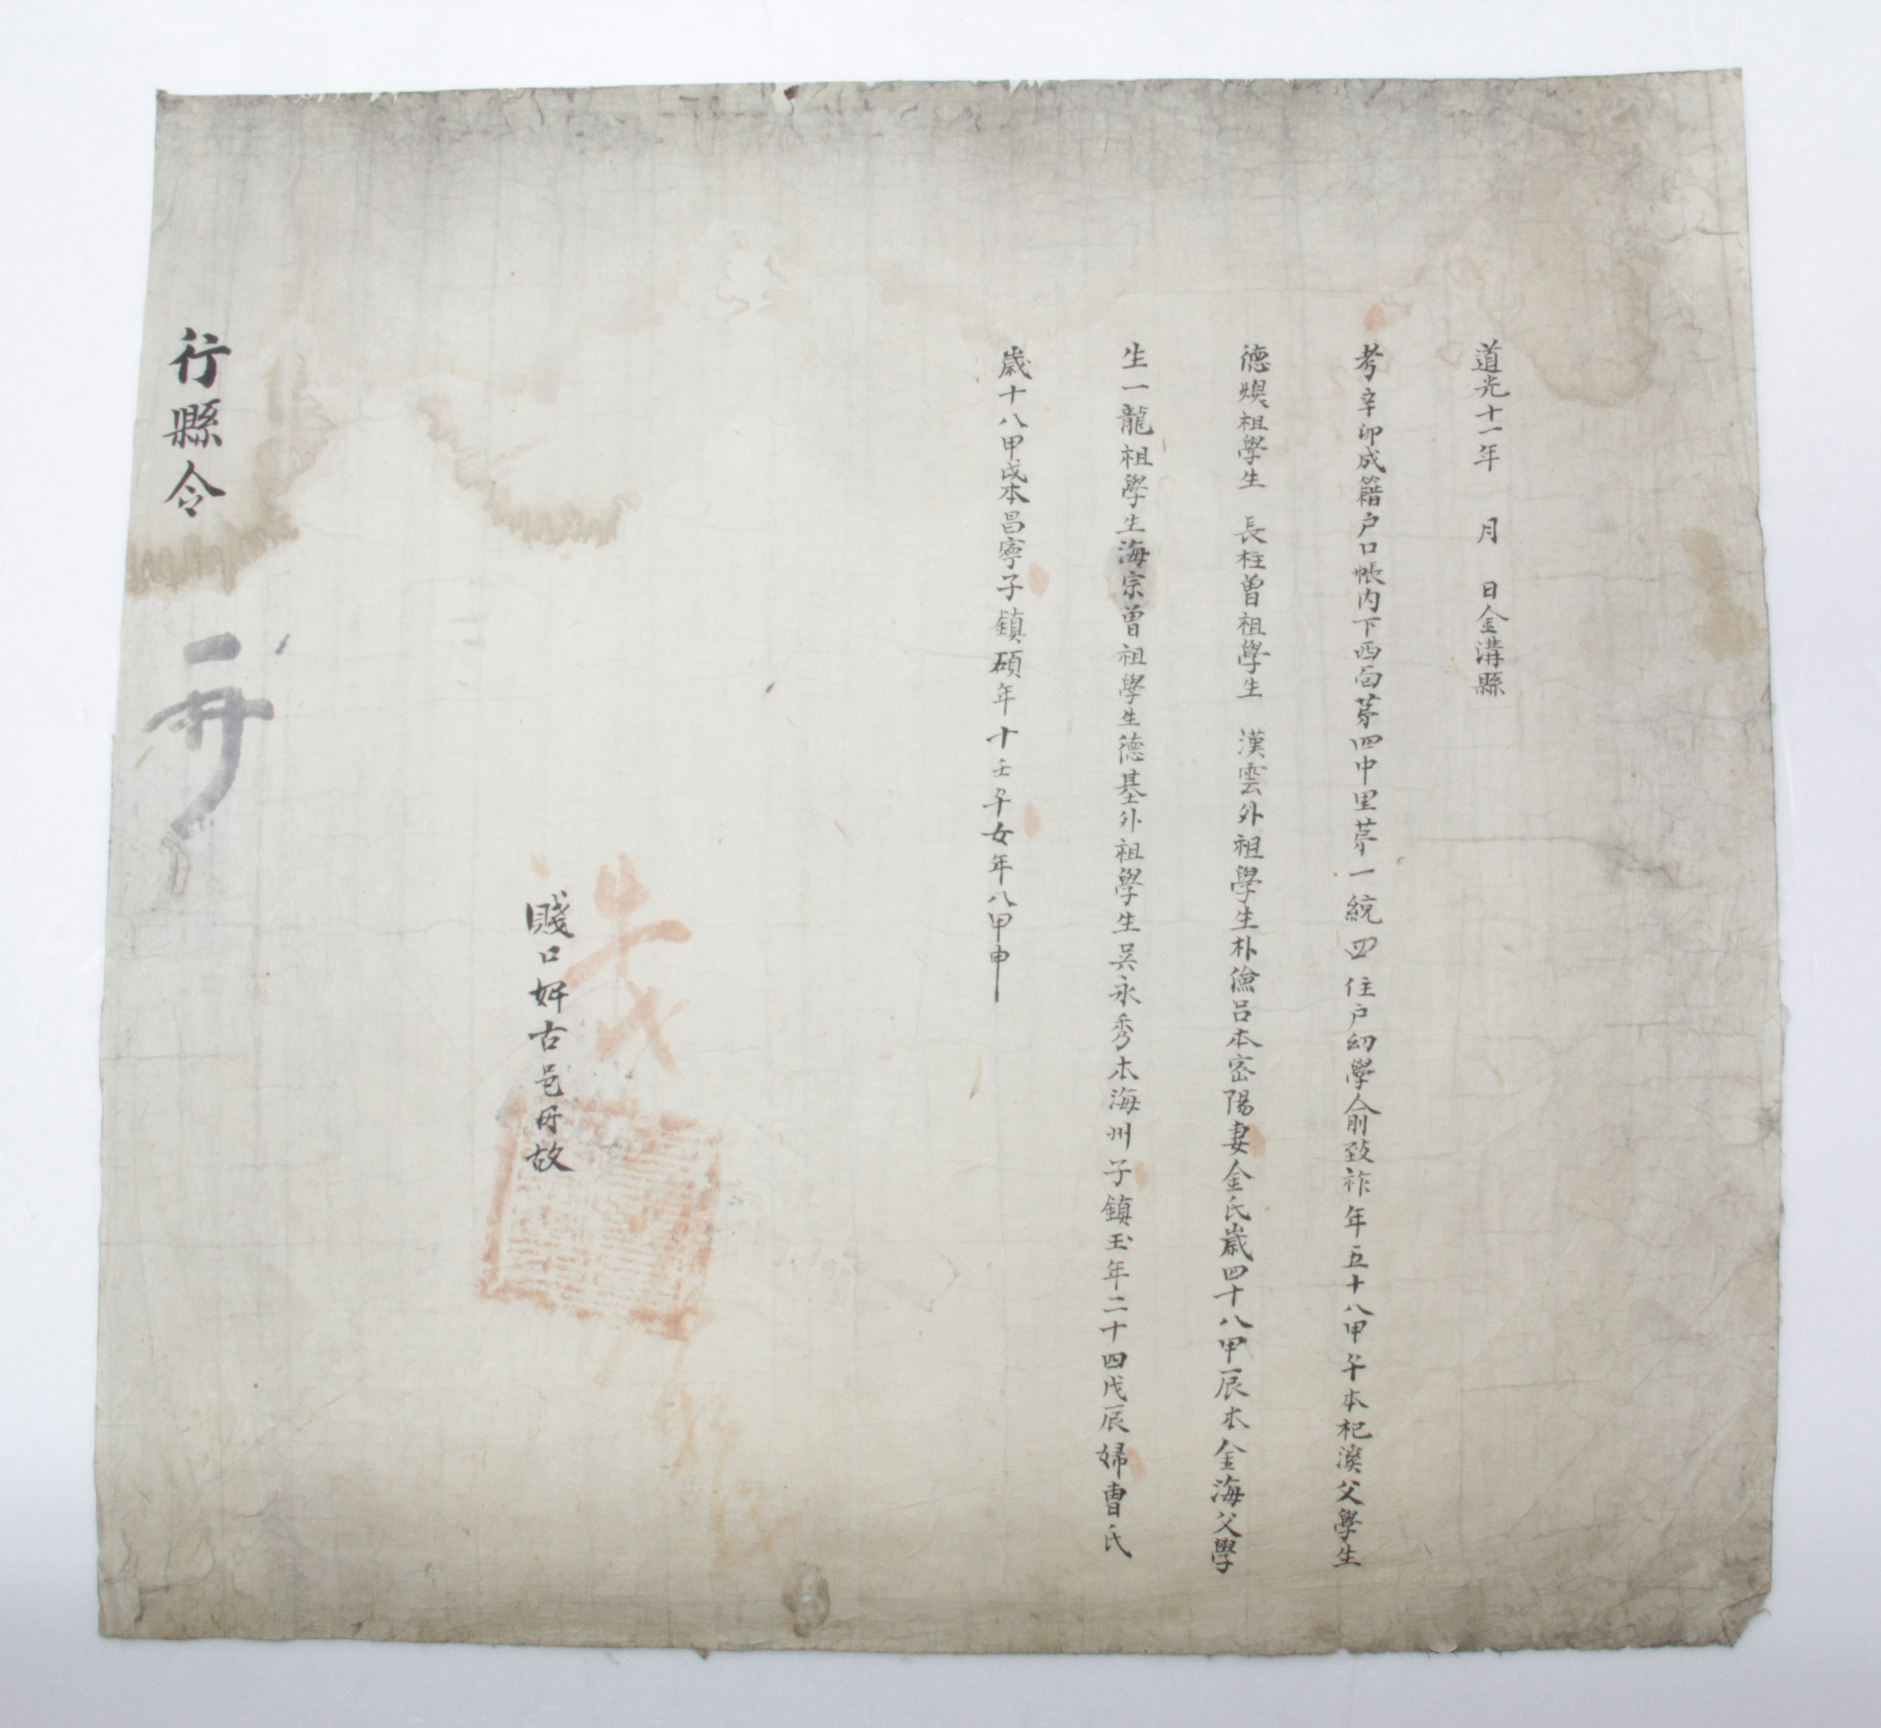 道光十一年 月 日金溝縣
考辛卯成籍户口帳内下西面苐四中里苐一統四 住户幼學俞致祚年五十八甲午本杞溪父學生
德煥祖學生 長柱曾祖學生 漢雲外祖學生朴儉呂本密陽妻金氏歲四十八甲辰本金海父學
生一龍祖學生海宗曾祖學生德基外祖學生吳永秀本海州子鎮玉年二十四戊辰婦曺氏
歲十八甲戌本昌寧子鎮碩年十壬午女年八甲申
賤口婢古邑丹故
行縣令